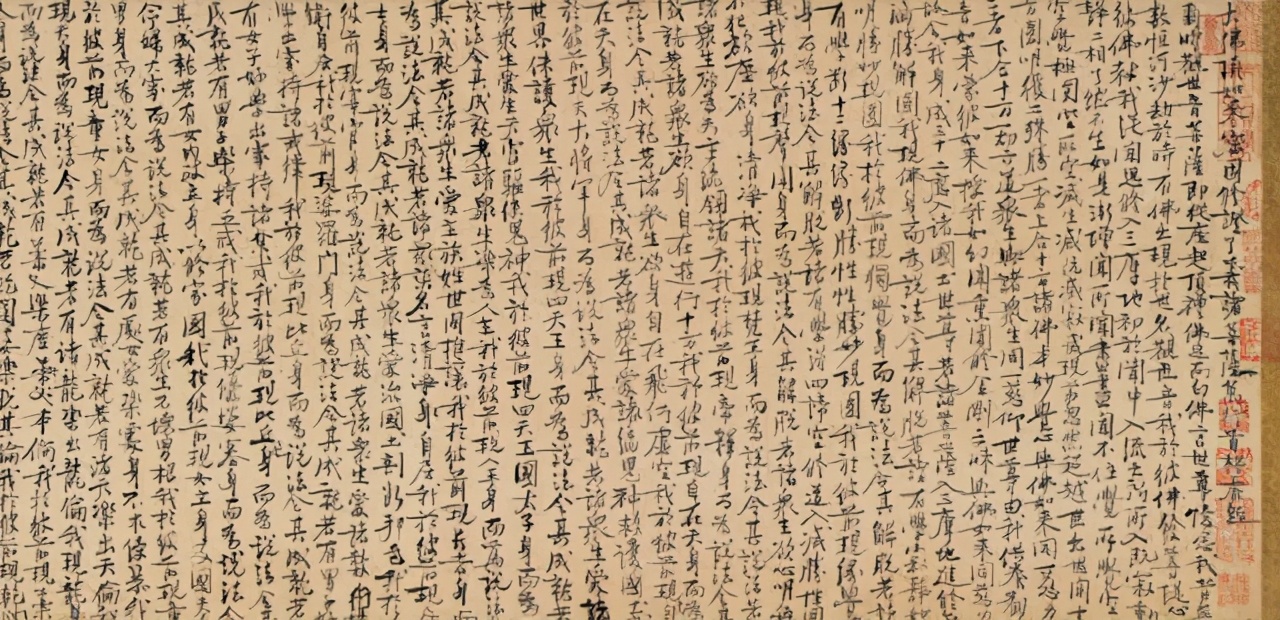 大佛頂如來密因修證了義諸菩薩萬行首楞嚴經
爾時觀世音菩薩即從座起頂禮佛足而白佛言世尊憶念我昔無
數恒河沙劫於時有佛出現於世名觀世音我於彼佛發菩提心
彼佛教我從聞思修入三摩地初於聞中入流亡所所入既寂動
靜二相了然不生如是漸增聞所聞盡盡聞不住覺所覺空
空覺極圓空所空滅生滅既滅寂滅現前忽然超越世出世間十
方圓明獲二殊勝一者上合十方諸佛本妙覺心與佛如來同一慈力
二者下合十方一切六道眾生與諸眾生同一悲仰世尊由我供養觀
音如來蒙彼如來授我如幻聞熏聞修金剛三昧與佛如來同慈力
故令我身成三十二應入諸國土世尊若諸菩薩入三摩地進修無
漏勝解圓我現佛身而為說法令其解脫若諸有學寂靜妙
明勝妙現圓我於彼前現獨覺身而為說法令其解脫若諸
有學斷十二緣緣斷勝性勝妙現圓我於彼前現緣覺
身而為說法令其解脫若諸有學得四諦空修道入滅勝性圓
現我於彼前現聲聞身而為說法令其解脫若諸眾生欲心明悟
不犯欲塵欲身清淨我於彼現梵王身而為說法令其解脫若
諸眾生欲為天主統領諸天我於彼前現帝釋身而為說法令其
成就若諸眾生欲身自在遊行十方我於彼前現自在天身而為
說法令其成就若諸眾生欲身自在飛行虛空我於彼前現自
在天身而為說法令其成就若諸眾生愛統鬼神救護國土我
於彼前現天大將軍身而為說法令其成就若諸眾生愛統
世界保護眾生我於彼前現四天王身而為說法令其成就若
諸眾生愛生天宮驅使鬼神我於彼前現四天王國太子身而為
說法令其成就若諸眾生樂為人王我於彼前現人王身而為說法令
其成就若諸眾生愛主族姓世間推讓我於彼前現長者身
為說法令其成就若諸眾生愛談名言清淨自居我於彼前現居
士身而為說法令其成就若諸眾生愛治國土剖斷邦邑我於
彼前現宰官身而為說法令其成就若諸眾生愛諸數術攝
衛自居我於彼前現婆羅門身而為說法令其成就若有男子好
學出家持諸戒律我於彼前現比丘身而為說法令其成就若
有女子好學出家持諸禁戒我於彼前現比丘尼身而為說法令其
成就若有男子樂持五戒我於彼前現優婆塞身而為說法令
其成就若有女內政立身以修家國我於彼前現女主身及國夫人
命婦大家而為說法令其成就若有眾生不壞男根我於彼前現童
男身而為說法令其成就若有處女愛樂處身不求侵暴我
於彼前現童女身而為說法令其成就若有諸天樂出天倫我
現天身而為說法令其成就若有諸龍樂出龍倫我現龍身
而為說法令其成就若有藥叉樂度本倫我於彼前現藥叉
身而為說法令其成就若乾闥婆樂脫其倫我於彼前現乾闥